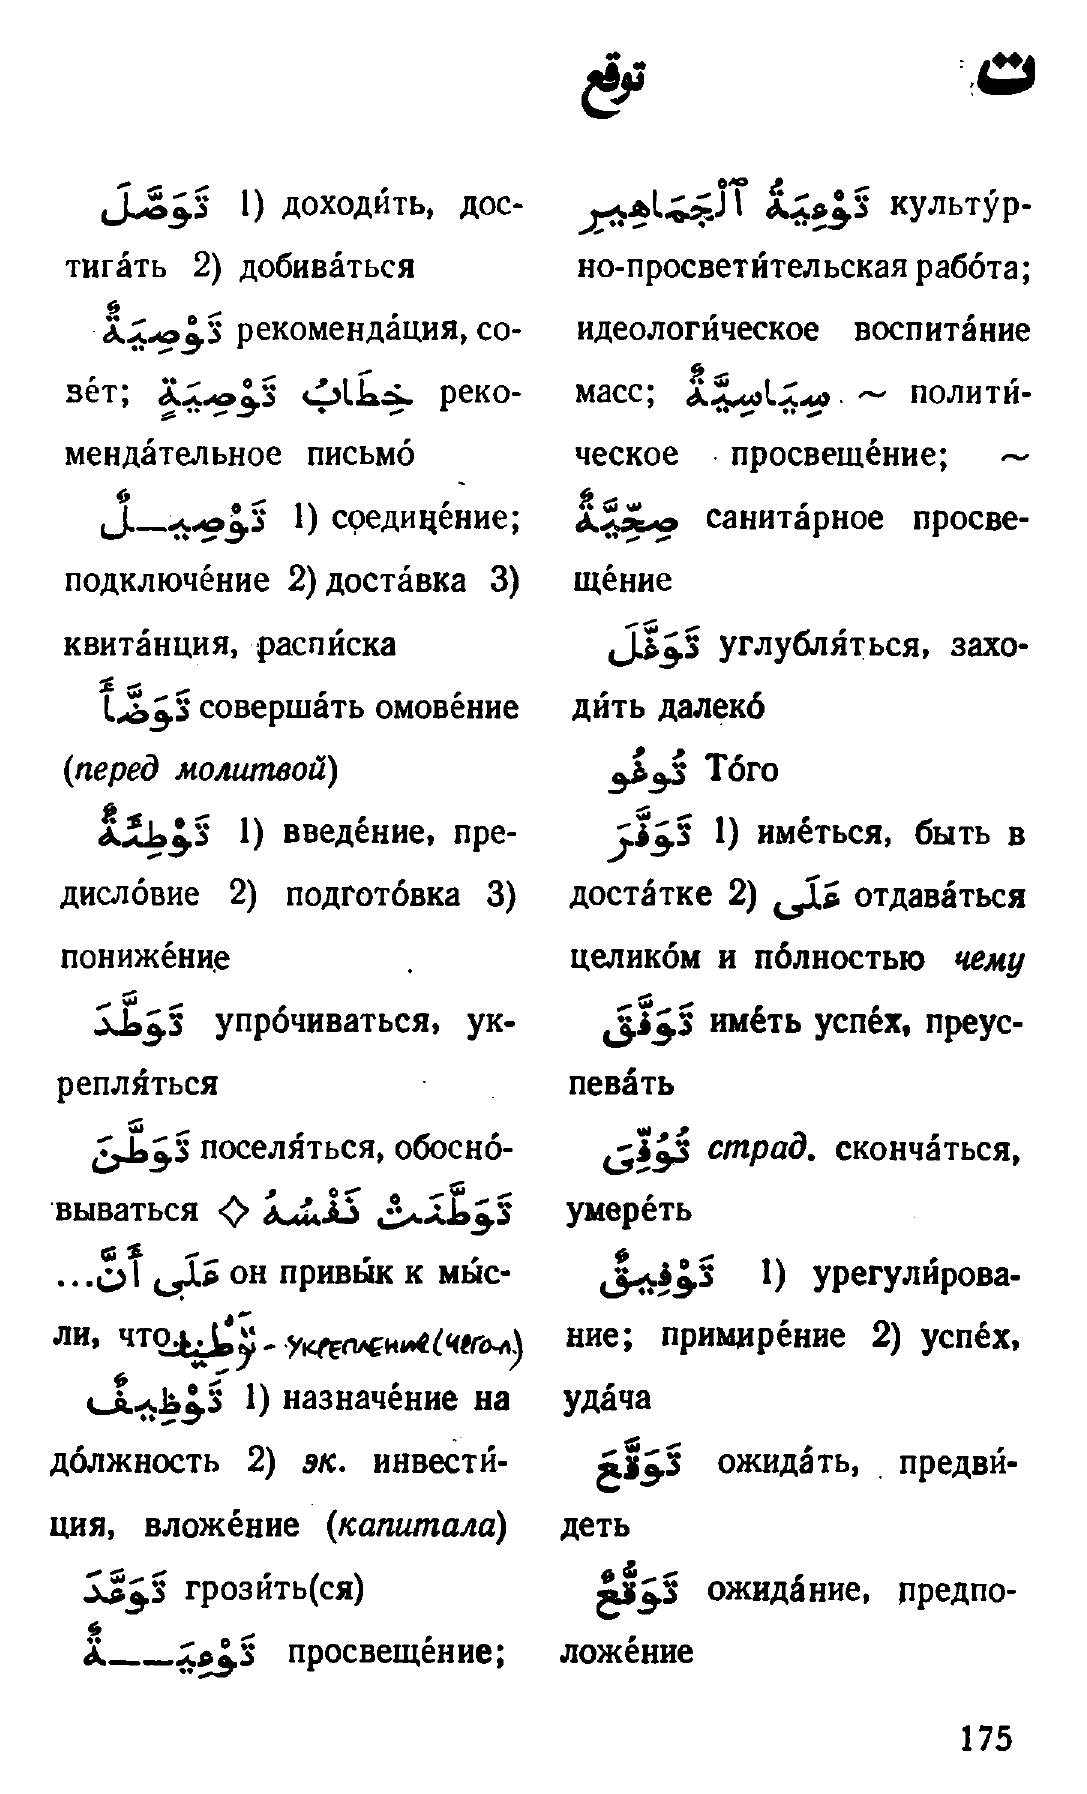 توقع ت
تَوَصَّلَ 1) доходи́ть, дос-
тига́ть 2) добива́ться
تَوْصِيَةٌ рекоменда́ция, со-
ве́т; خِطَابُ تَوْصِيَةٍ реко-
менда́тельное письмо́
تَوْصِيـــلٌ 1) соедине́ние;
подключе́ние 2) доста́вка 3)
квита́нция, распи́ска
تَوَضَّأَ соверша́ть омове́ние
(перед молитвой)
تَوْطِئَةٌ 1) введе́ние, пре-
дисло́вие 2) подгото́вка 3)
пониже́ние
تَوَطَّدَ упро́чиваться, ук-
репля́ться
تَوَطَّنَ поселя́ться, обосно́-
вываться ◇ تَوَطَّنَتْ نَفْسُهُ
عَلَى أَنَّ... он привы́к к мы́с-
ли, что توطيد - укрепление (чего-л.)
تَوْظِيفٌ 1) назначе́ние на
до́лжность 2) эк. инвести́-
ция, вложе́ние (капитала)
تَوَعَّدَ грози́ть(ся)
تَوْعِيَـــــةٌ просвеще́ние;
تَوْعِيَةُ ٱلْجَمَاهِيرِ культу́р-
но-просвети́тельская рабо́та;
идеологи́ческое воспита́ние
масс; سِيَاسِيَّةٌ ~ полити́-
ческое просвеще́ние; ~
صِحِّيَّةٌ санита́рное просве-
ще́ние
تَوَغَّلَ углубля́ться, захо-
ди́ть далеко́
تُوغُو То́го
تَوَفَّرَ 1) име́ться, быть в
доста́тке 2) عَلَى отдава́ться
целико́м и по́лностью чему
تَوَفَّقَ име́ть успе́х, преус-
пева́ть
تُوُفِّىَ страд. сконча́ться,
умере́ть
تَوْفِيقٌ 1) урегули́рова-
ние; примире́ние 2) успе́х,
уда́ча
تَوَقَّعَ ожида́ть, предви́-
деть
تَوَقُّعٌ ожида́ние, предпо-
ложе́ние
175